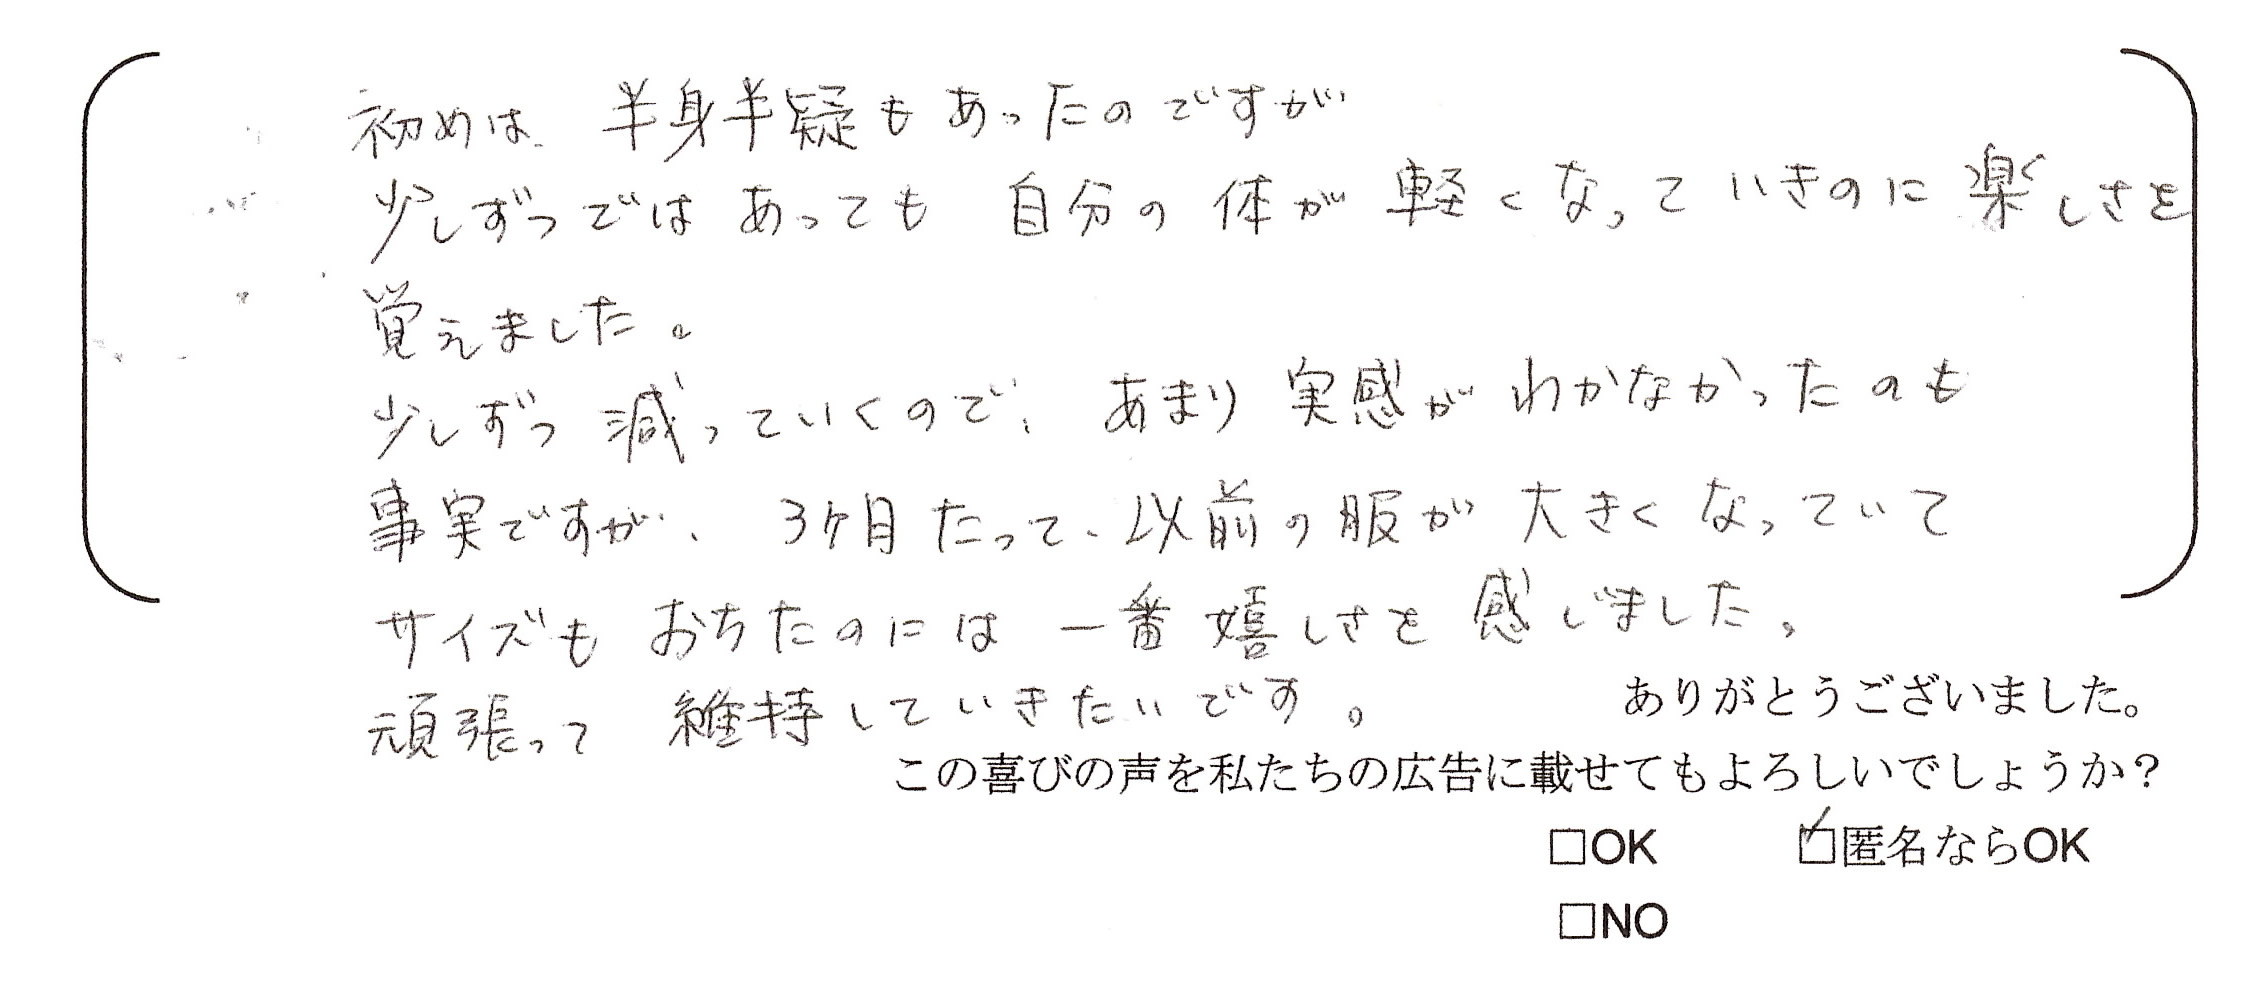 初めは 半身半疑もあったのですが
少しずつではあっても 自分の体が軽くなっていきのに楽しさを
覚えました。
少しずつ減っていくので、あまり実感がわかなかったのも
事実ですが、3ケ月たって、以前の服が大きくなっていて
サイズもおちたのには一番嬉しさを感じました。
頑張って維持していきたいです。
ありがとうございました。
この喜びの声を私たちの広告に載せてもよろしいでしょうか？
□OK ☑匿名ならOK
□NO